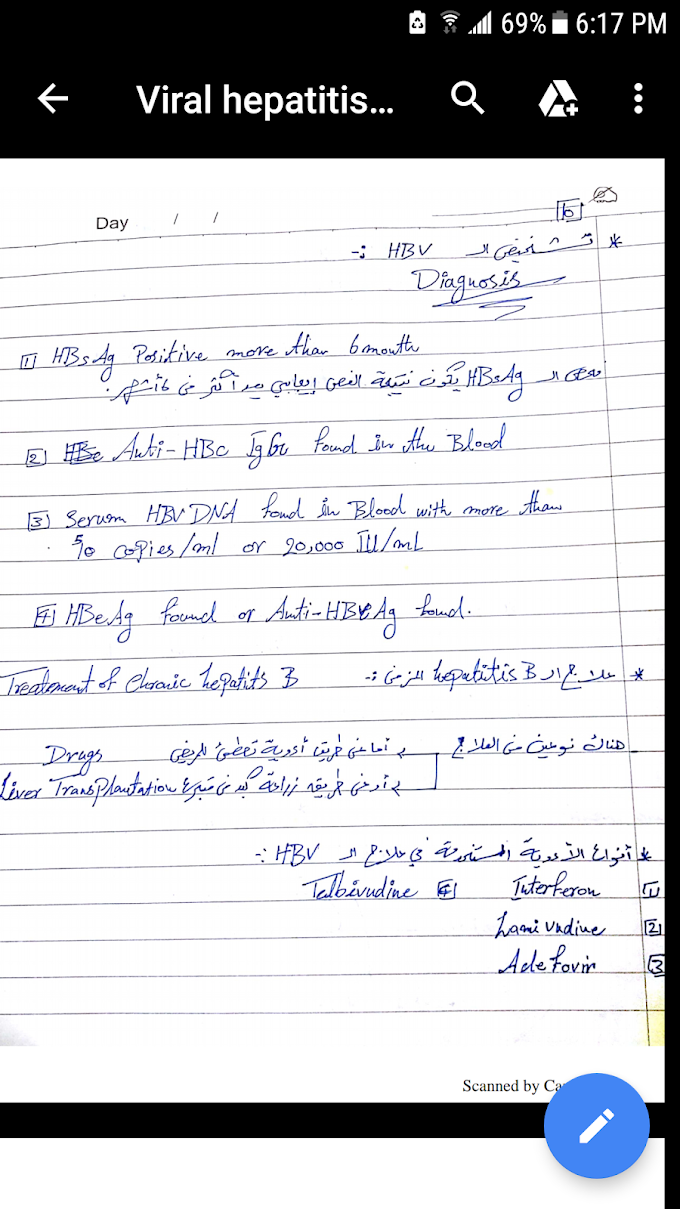 69% 6:17 PM
Viral hepatitis...
Day / /
6
* تشخيص الـ HBV :-
Diagnosis
1 HBsAg Positive more than 6 mouth
الـ HBsAg يكون نتيجة الفحص إيجابي بعد أكثر من 6 أشهر.
2 Anti-HBc IgG found in the Blood
3 Serum HBV DNA found in Blood with more than
copies/ml or 20,000 IU/mL
4 HBeAg found or Anti-HBeAg found.
* علاج الـ hepatitis B المزمن :-
Treatement of Chronic hepatits B
هناك نوعين من العلاج
أما عن طريق أدوية تعطى للمريض Drugs
أو عن طريقه زراعة كبد من متبرع Liver Transplantation
* أنواع الأدوية المستخدمة في علاج الـ HBV :-
1 Interferon 4 Telbivudine
2 Lamivudine
3 Adefovir
Scanned by Ca